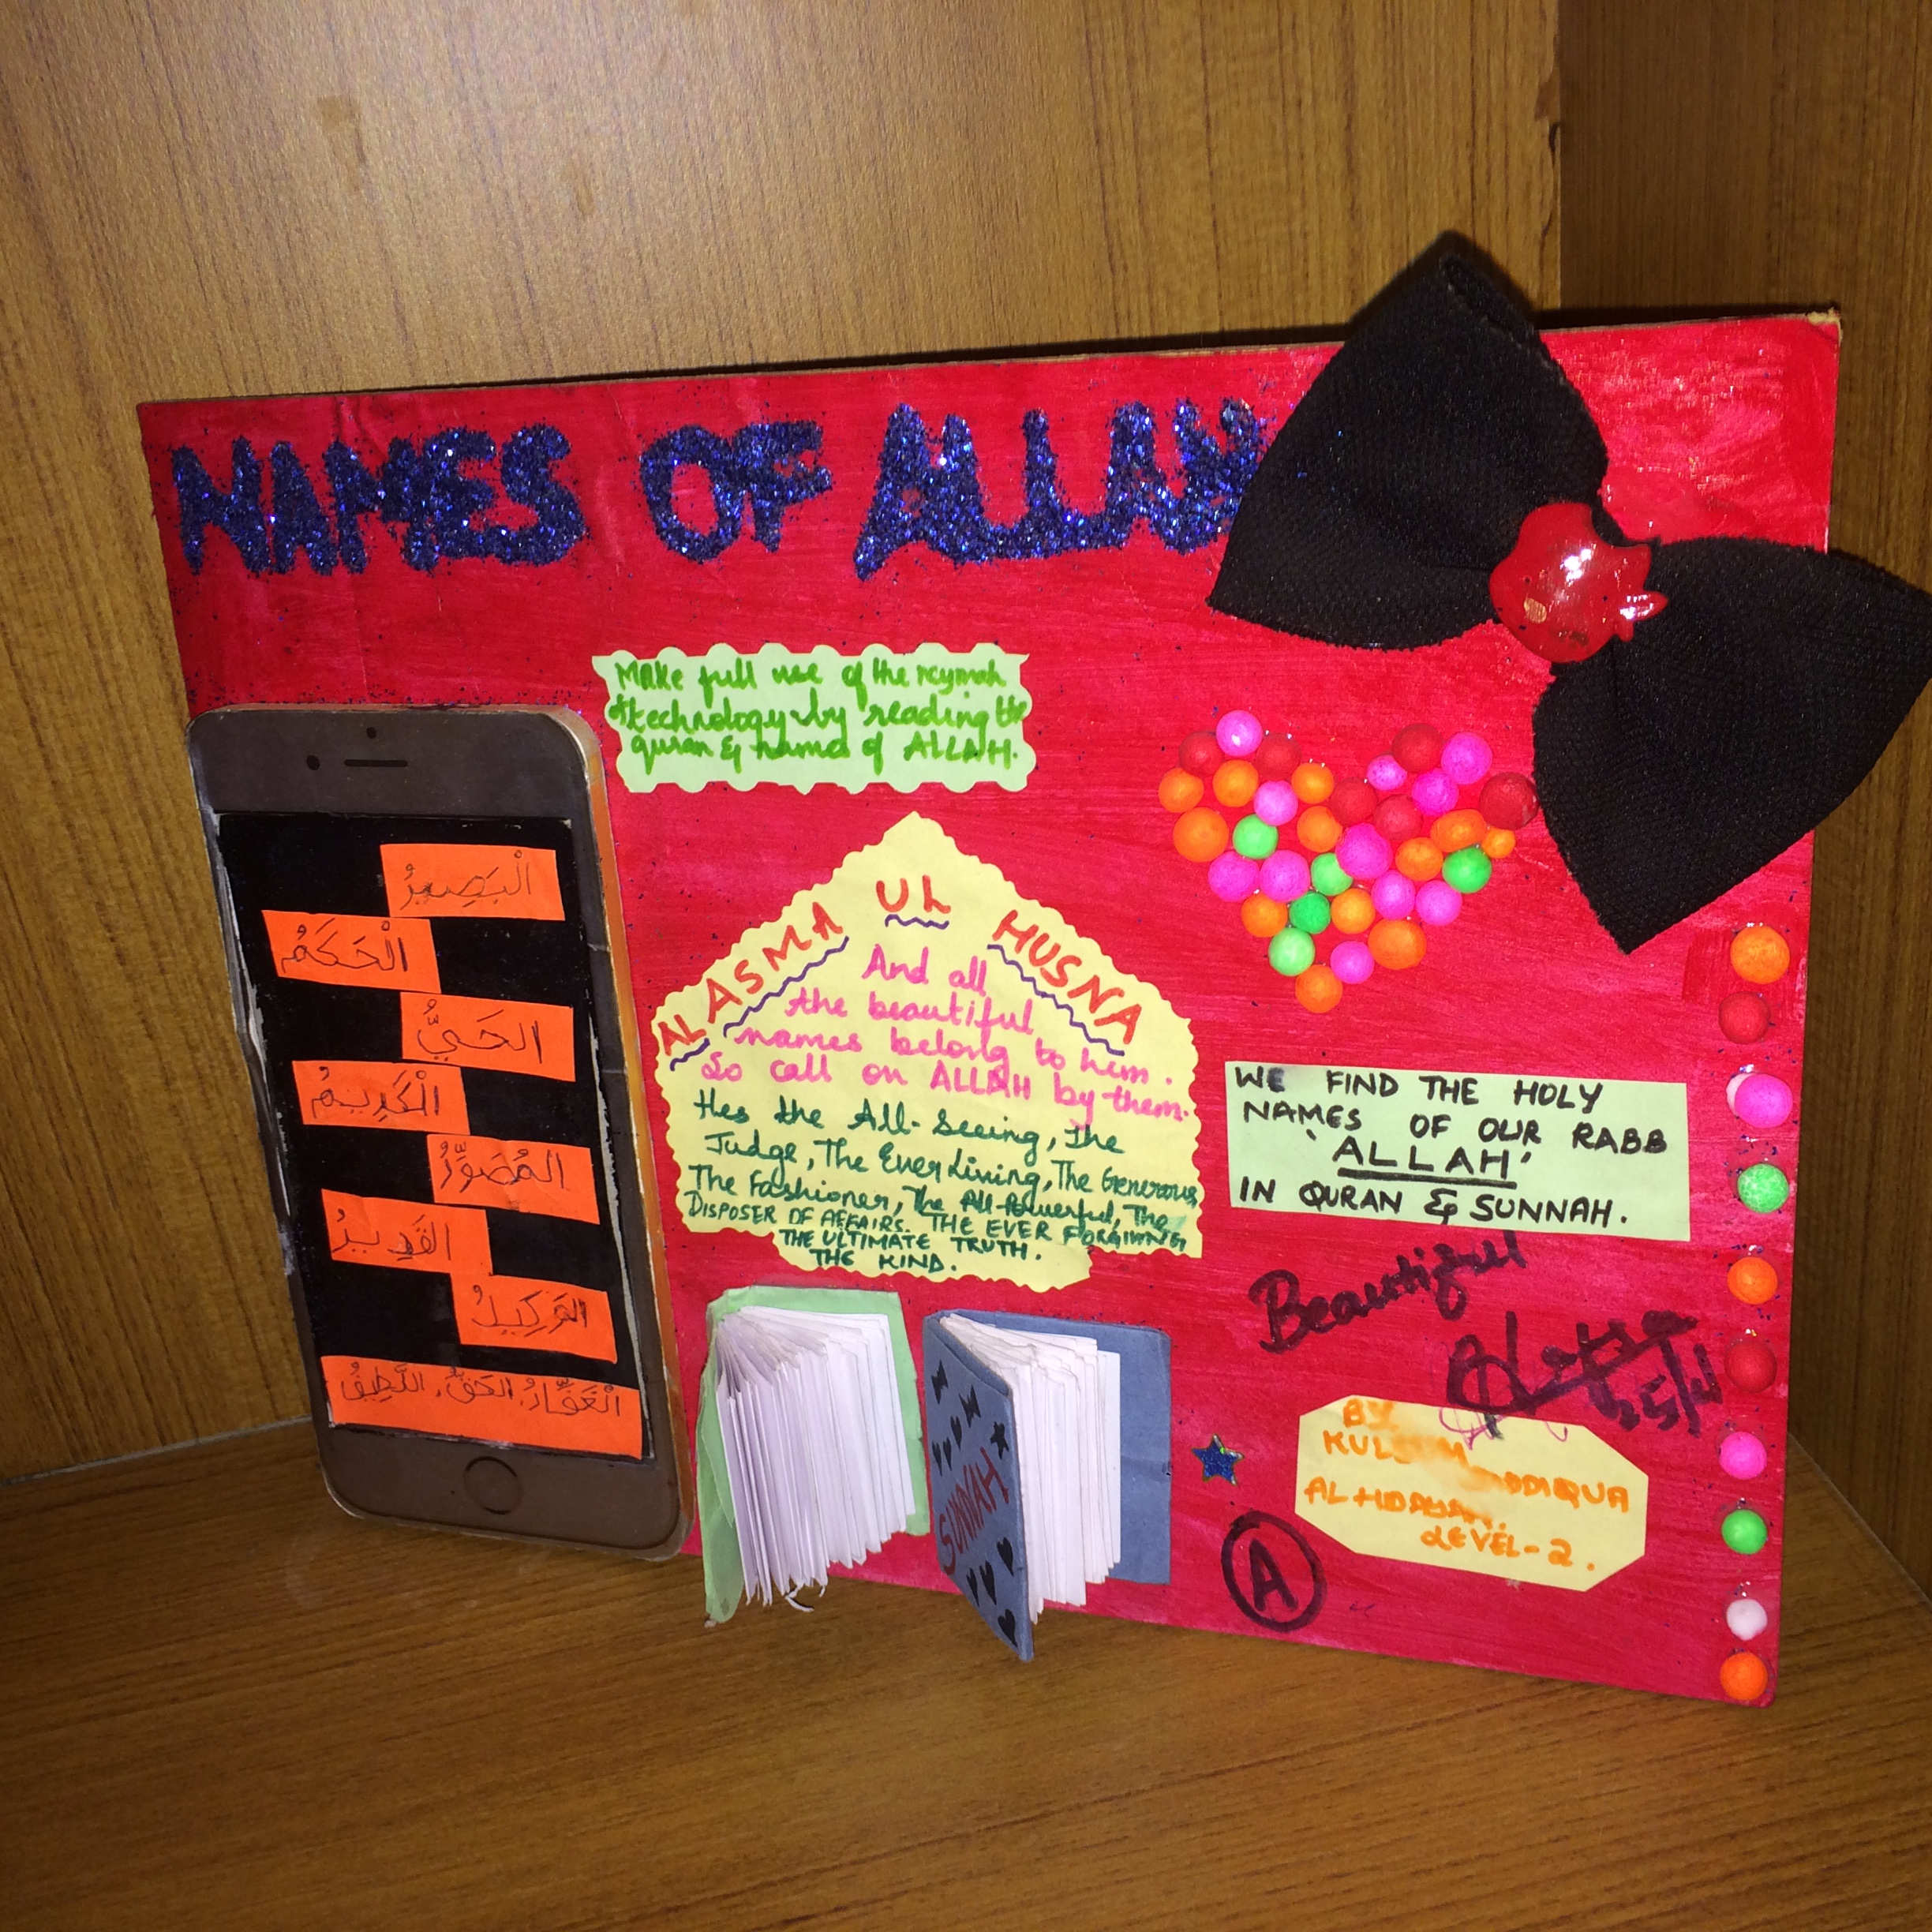 NAMES OF ALLAH
Make full use of the
technology by reading the
quran & names of ALLAH.
الْبَصِيرُ
الْحَكَمُ
الحَيُّ
الْكَرِيمُ
المُصَوِّرُ
القَدِيرُ
الوَكِيلُ
الْغَفَّارُ، الحَقُّ، اللَّطِيفُ
AL ASMA UL HUSNA
And all
the beautiful
names belong to him.
So call on ALLAH by them.
Hes the All-Seeing, The
Judge, The Ever Living, The Generous
The Fashioner, The All-Powerful, The
DISPOSER OF AFFAIRS. THE EVER FORGIVING
THE ULTIMATE TRUTH.
THE KIND.
WE FIND THE HOLY
NAMES OF OUR RABB
'ALLAH'
IN QURAN & SUNNAH.
Beautiful
SUNNAH
A
BY
LEVEL-2.